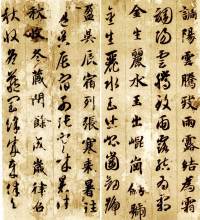 調陽雲騰致雨露結為霜
調陽雲騰致雨露結為霜
金生麗水玉出崑岡劍號
金生麗水玉出崑岡劍號
盈昃辰宿列張寒來暑往
盈昃辰宿列張寒來暑往
秋收冬藏閏餘成歲律呂
秋收冬藏閏餘成歲律呂